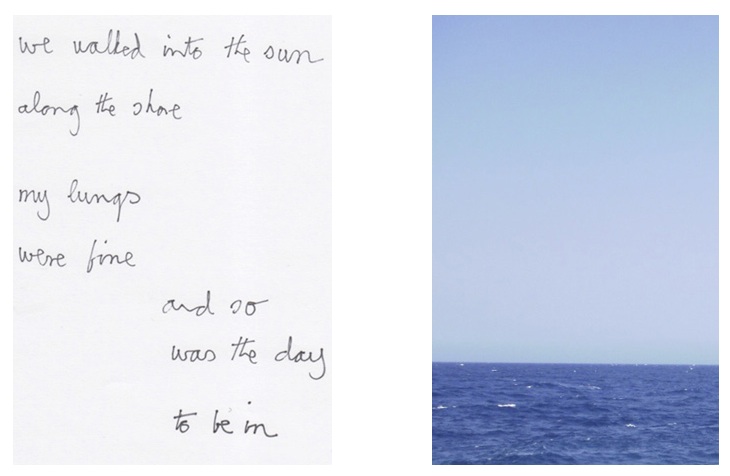 we walked into the sun
along the shore
my lungs
were fine
and so
was the day
to be in